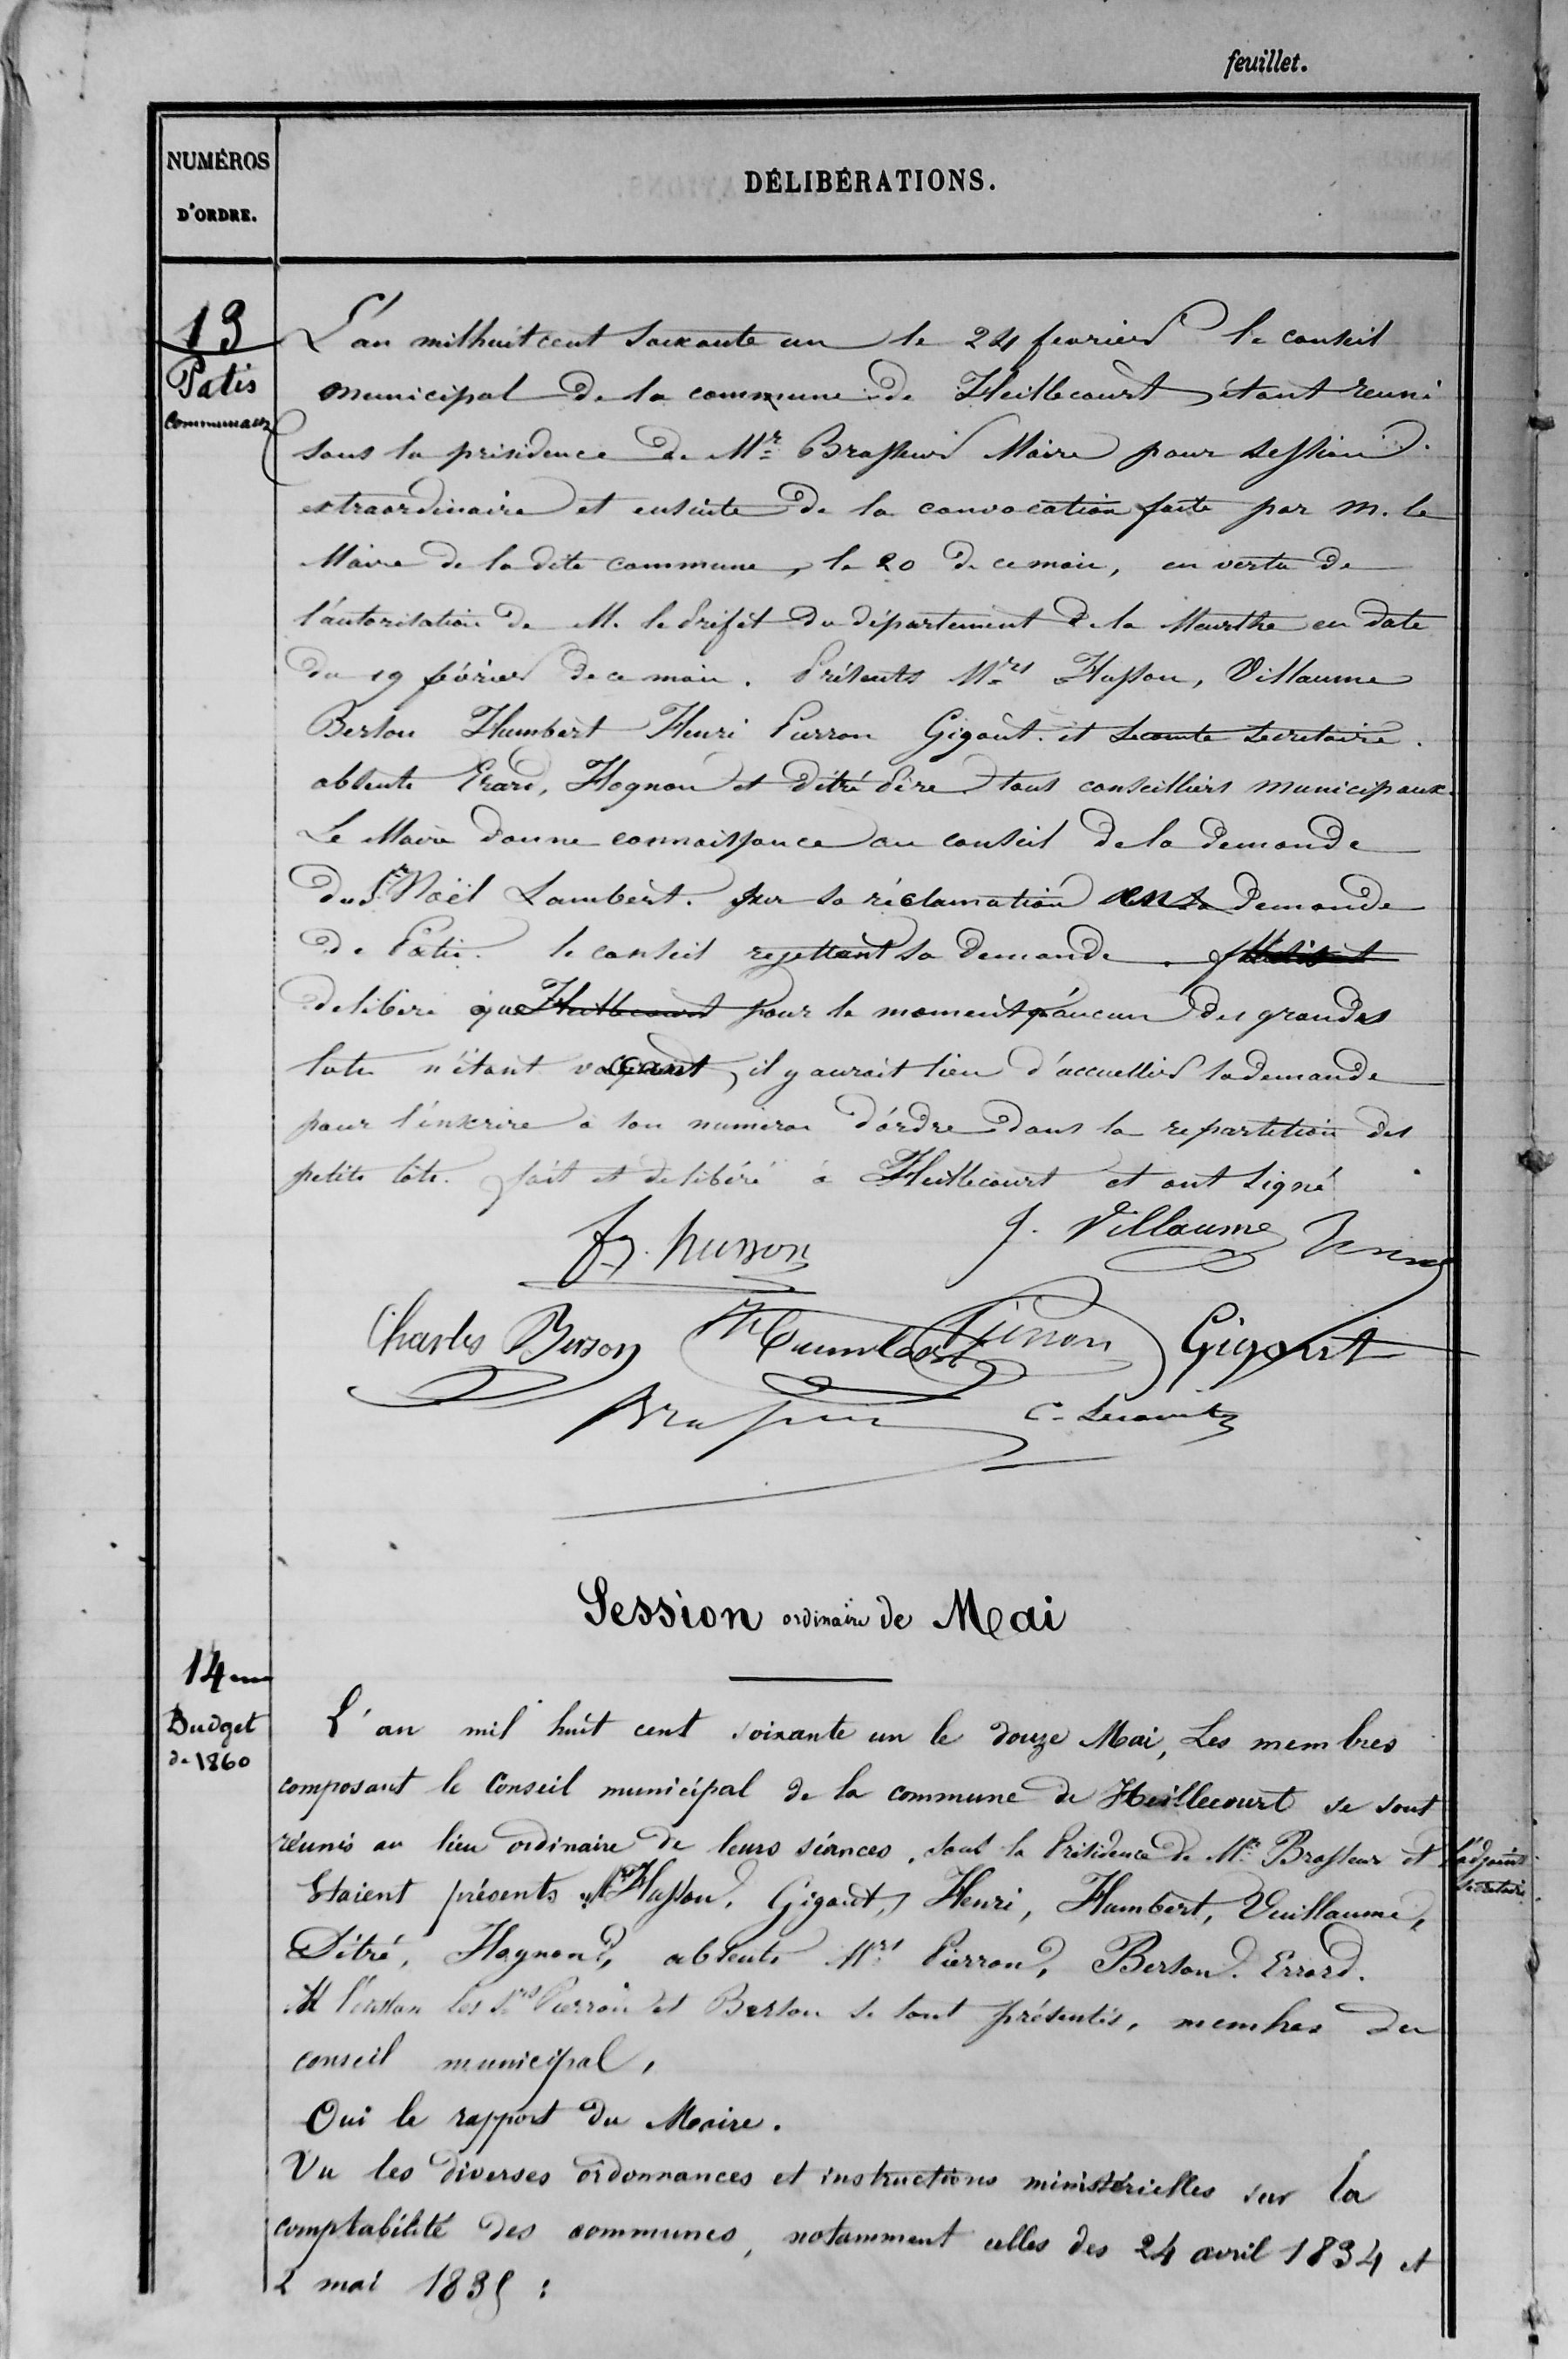 feuillet.
NUMÉROS
D'ORDRE.
DÉLIBÉRATIONS.
13
Patis
communaux
L'an mil huit cent soixante un le 24 fevrier le conseil
municipal de la commune de Heillecourt étant reuni
sous la présidence de Mr Brasseur Maire pour session
extraordinaire et ensuite de la convocation faite par M. le
Maire de la dite commune, le 20 de ce mois, en vertu de
l'autorisation de M. le Préfet du département de la Meurthe en date
du 19 février de ce mois. Présents Mrs Husson, Villaume
Berson Humbert Henri Pierron Gigout. et Lecomte Secretaire.
absents Erard, Hognon et Pêtré Père tous conseilliers municipaux.
Le Maire donne connaissance au conseil de la demande
du Sr Noël Lambert. sur sa réclamation en sa demande
de Patis. le conseil rejettant sa demande.
delibère que Heillecourt pour le moment aucun des grandes
lots n'étant vacant, il y aurait lieu d'accuellir sa demande
pour l'inscrire à son numéro d'órdre dans la repartition des
petits lots. fait et delibéré à Heillecourt et ont signé
fs. husson
J. Villaume Henry
Charles Berson Humbert Pierron Gigout
Brasseur C. Lecomte
Session ordinaire de Mai
14 em
Budget
de 1860
L'an mil huit cent soixante un le douze Mai, Les membres
composant le Conseil municipal de la commune de Heillecourt se sont
réunis au lieu ordinaire de leurs séances, sous la Présidence de Mr Brasseur et l'adjoint
Secretaire
Etaient présents Mrs Husson, Gigout, Henri, Humbert, Vuillaume,
Pêtré, Hognon, absents Mrs Pierron, Berson. Errard.
les Srs Pierron et Berson se sont présentés, membres du
conseil municipal,
Oui le rapport du Maire.
Vu les diverses ordonnances et instructions ministérielles sur la
comptabilité des communes, notamment celles des 24 avril 1834 et
2 mai 1835 :